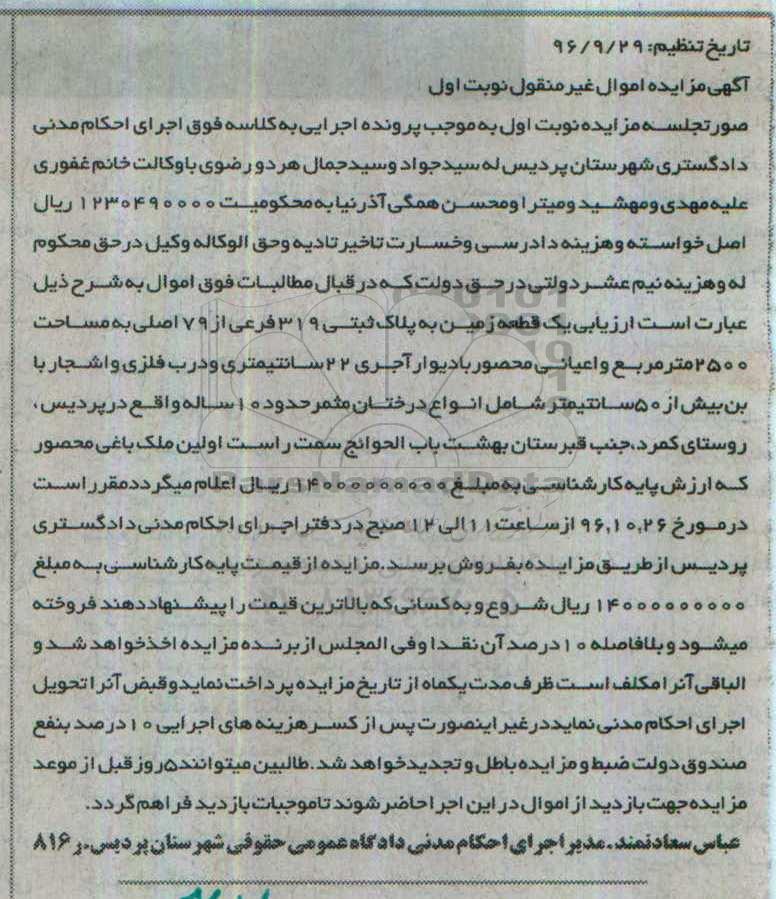 تاریخ تنظیم: ۹۶/۹/۲۹
آگهی مزایده اموال غیر منقول نوبت اول
صورتجلسه مزایده نوبت اول به موجب پرونده اجرایی به کلاسه فوق اجرای احکام مدنی
دادگستری شهرستان پردیس له سیدجواد وسیدجمال هردو رضوی باوکالت خانم غفوری
علیه مهدی ومهشید ومیترا ومحسن همگی آذرنیا به محکومیت ۱۲۳۰۴۹۰۰۰۰ ریال
اصل خواسته وهزینه دادرسی وخسارت تاخیر تادیه وحق الوکاله وکیل درحق محکوم
له وهزینه نیم عشر دولتی درحق دولت که در قبال مطالبات فوق اموال به شرح ذیل
عبارت است ارزیابی یک قطعه زمین به پلاک ثبتی ۳۱۹ فرعی از ۷۹ اصلی به مساحت
۲۵۰۰مترمربع واعیانی محصور بادیوار آجری ۲۲ سانتیمتری ودرب فلزی واشجار با
بن بیش از ۵۰سانتیمتر شامل انواع درختان مثمر حدود ۱۰ ساله واقع در پردیس ،
روستای کمرد،جنب قبرستان بهشت باب الحوائج سمت راست اولین ملک باغی محصور
که ارزش پایه کارشناسی به مبلغ ۱۴۰۰۰۰۰۰۰۰۰ ریال اعلام میگردد مقرر است
در مورخ ۹۶,۱۰,۲۶ از ساعت ۱۱الی ۱۲ صبح در دفتر اجرای احکام مدنی دادگستری
پردیس از طریق مزایده بفروش برسد.مزایده از قیمت پایه کارشناسی به مبلغ
۱۴۰۰۰۰۰۰۰۰۰ ریال شروع و به کسانی که بالاترین قیمت را پیشنهاد دهند فروخته
میشود و بلافاصله ۱۰ درصد آن نقدا وفی المجلس از برنده مزایده اخذ خواهد شد و
الباقی آنرا مکلف است ظرف مدت یکماه از تاریخ مزایده پرداخت نماید و قبض آنرا تحویل
اجرای احکام مدنی نماید در غیر اینصورت پس از کسر هزینه های اجرایی ۱۰ درصد بنفع
صندوق دولت ضبط و مزایده باطل و تجدید خواهد شد.طالبین میتوانند ۵ روز قبل از موعد
مزایده جهت بازدید از اموال در این اجرا حاضر شوند تا موجبات بازدید فراهم گردد.
عباس سعادتمند.مدیر اجرای احکام مدنی دادگاه عمومی حقوقی شهرستان پردیس.ر ۸۱۶